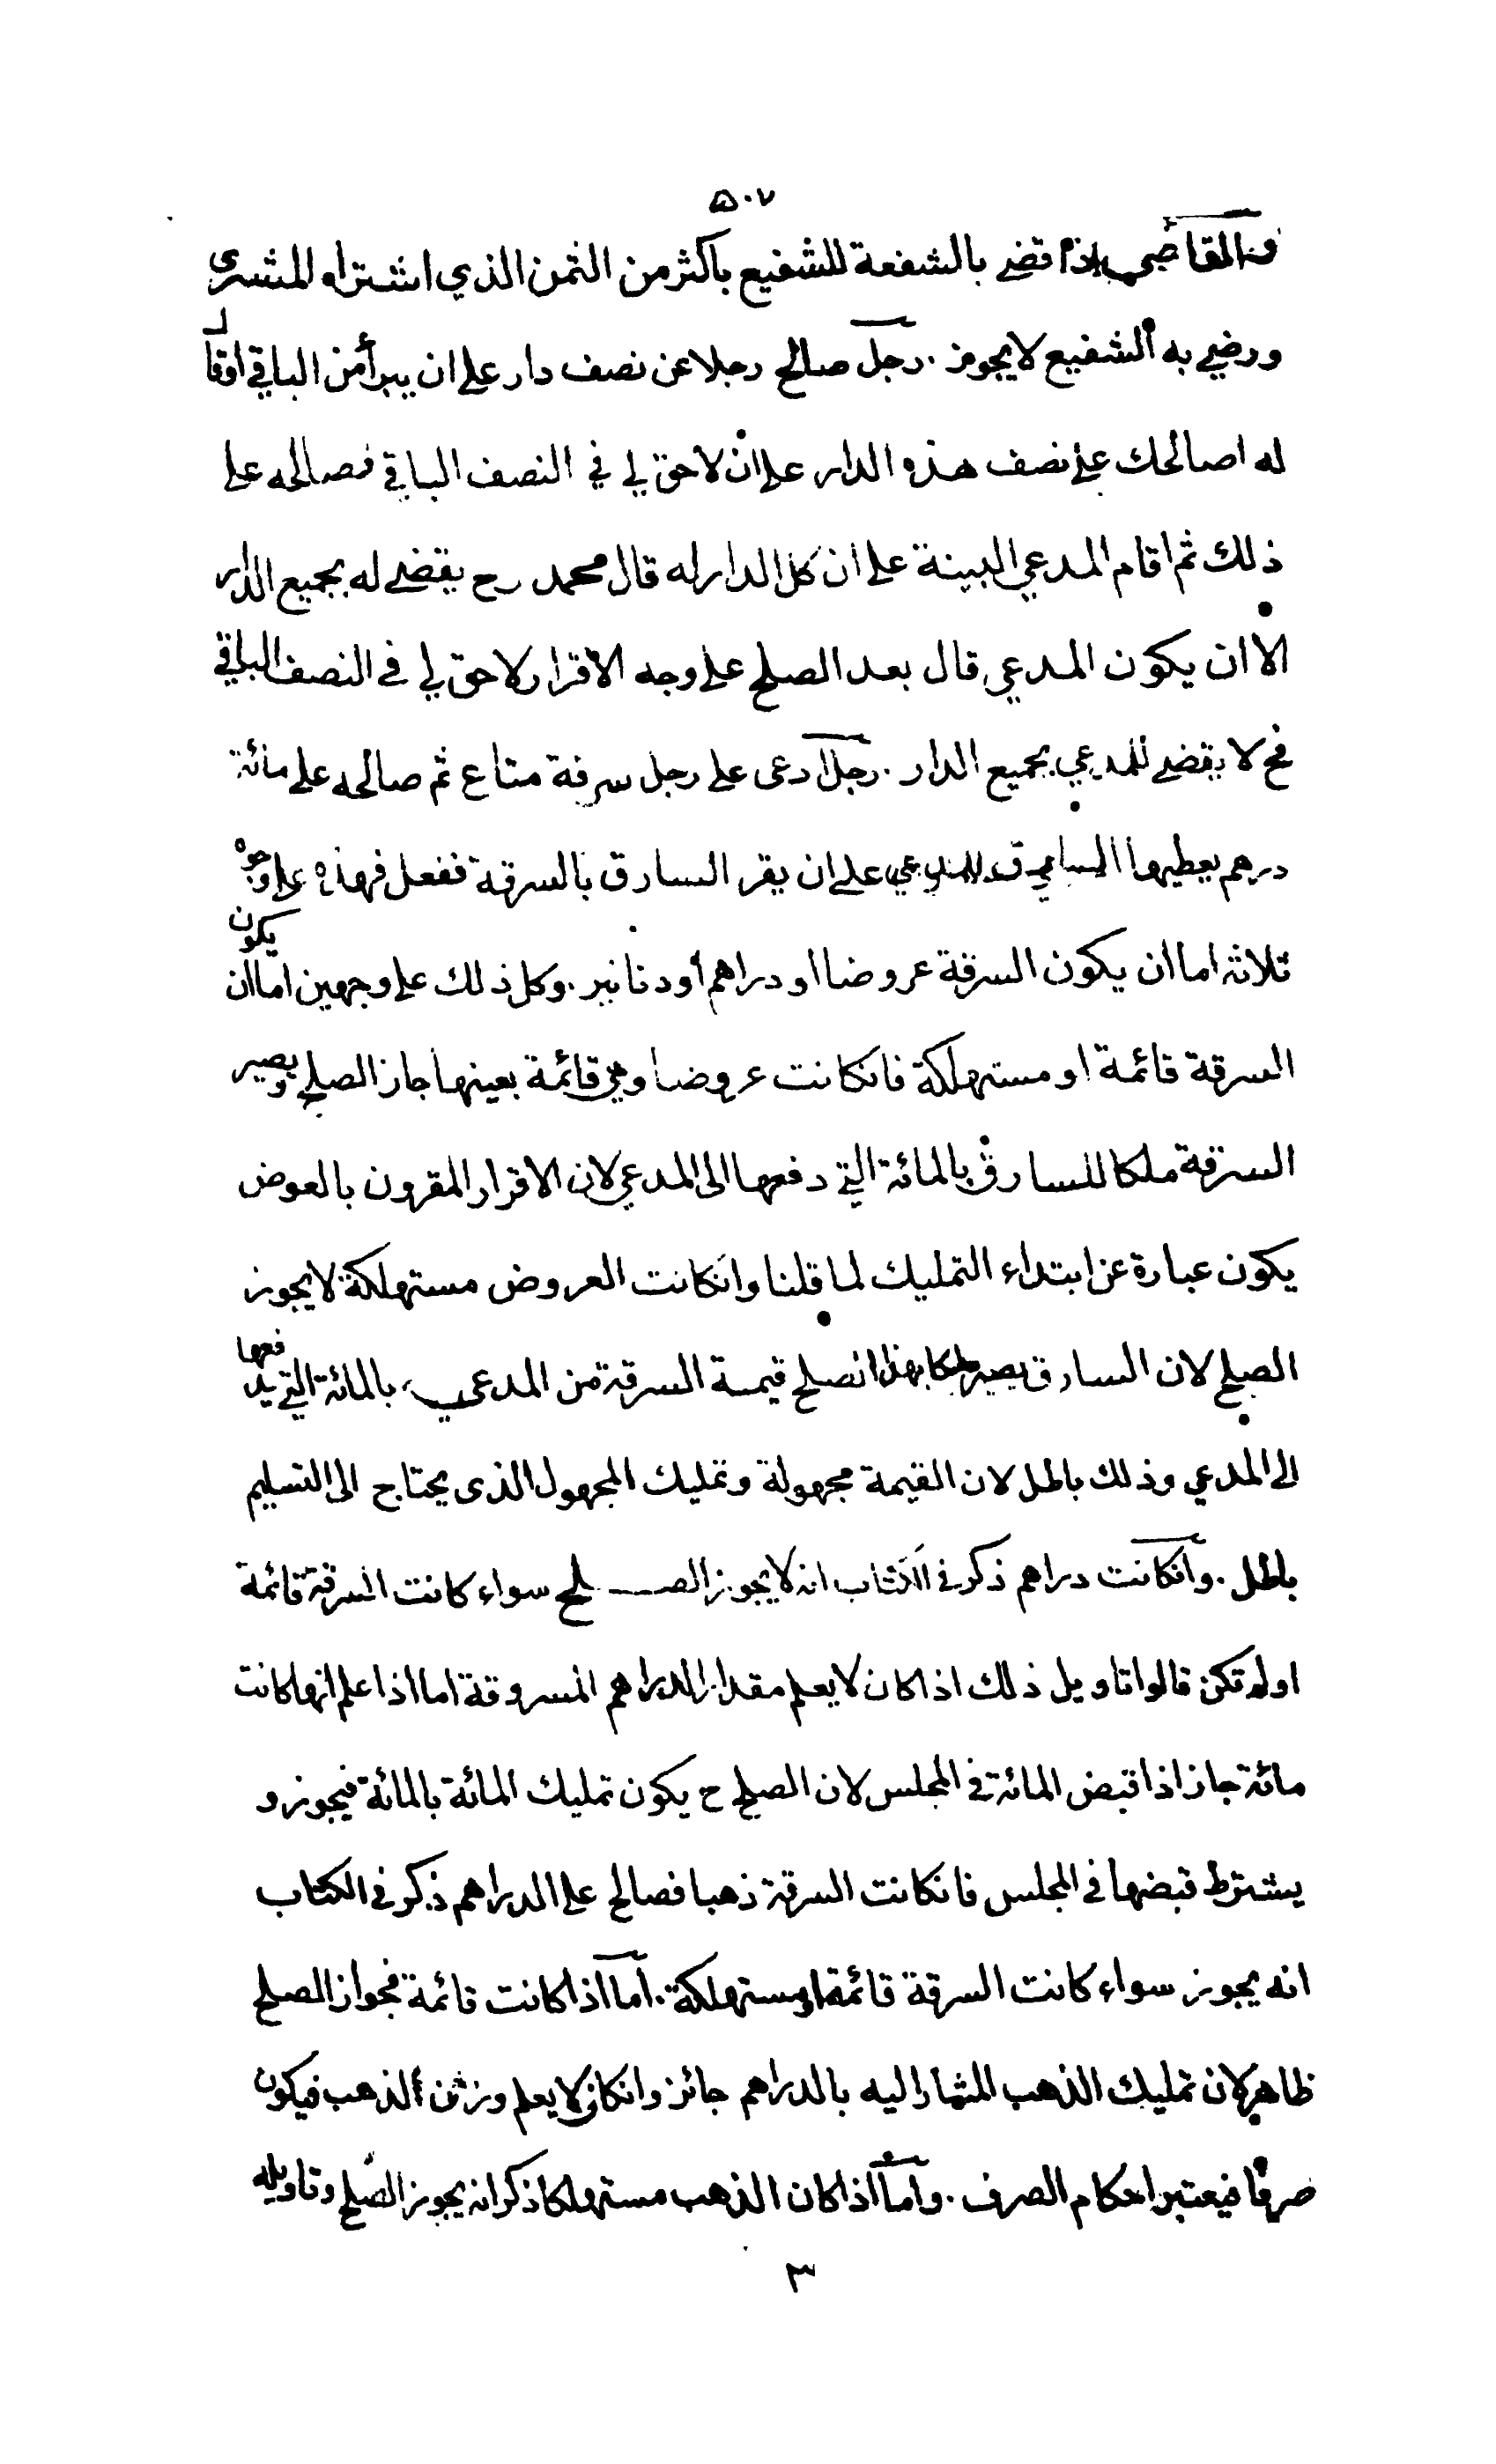 ٥٠٧
والقاضي اذا قضے بالشفعة للشفيع باكثر من الثمن الذي اشتراه المشترى
ورضي به الشفيع لا يجوز . رجل صالح رجلا عن نصف دار على ان يبرأ من الباقي اوقال
له اصالحك على نصف هذه الدار على ان لا حق لي في النصف الباقي فصالحه على
ذلك ثم اقام المدعي البينة على ان كل الدار له قال محمد رح يقضے له بجميع الدار
الا ان يكون المدعي قال بعد الصلح على وجه الاقرار لا حق لي في النصف الباقي
فح لا يقضے للمدعي بجميع الدار . رجل ادعى على رجل سرقة متاع ثم صالحه على مائة
درهم يعطيها السارق للمدعي على ان يقر السارق بالسرقة ففعل فهذه على وجوه
ثلاثة اما ان يكون السرقة عروضا او دراهم او دنانير . وكل ذلك على وجهين اما ان يكون
السرقة قائمة او مستهلكة فانكانت عروضا وهي قائمة بعينها جاز الصلح ويصير
السرقة ملكا للسارق بالمائة التي دفعها الى المدعي لان الاقرار المقرون بالعوض
يكون عبارة عن ابتداء التمليك لما قلنا وانكانت العروض مستهلكة لا يجوز
الصلح لان السارق يصير ملكا بهذا الصلح قيمة السرقة من المدعي بالمائة التي يدفعها
الى المدعي وذلك باطل لان القيمة مجهولة وتمليك المجهول الذى يحتاج الى التسليم
باطل . وانكانت دراهم ذكر في الكتاب انه لا يجوز الصـــلح سواء كانت السرقة قائمة
اولم تكن قالوا تاويل ذلك اذا كان لا يعلم مقدار الدراهم المسروقة اما اذا علم انها كانت
مائة جاز اذا قبض المائة في المجلس لان الصلح ح يكون تمليك المائة بالمائة فيجوز و
يشترط قبضها في المجلس فانكانت السرقة ذهبا فصالح على الدراهم ذكر في الكتاب
انه يجوز سواء كانت السرقة قائمة او مستهلكة . اما اذا كانت قائمة فجواز الصلح
ظاهر لان تمليك الذهب المشار اليه بالدراهم جائز وانكان لا يعلم وزن الذهب فيكون
صرفا فيعتبر احكام الصرف . واما اذا كان الذهب مستهلكا ذكر انه يجوز الصلح وتاويله
٣